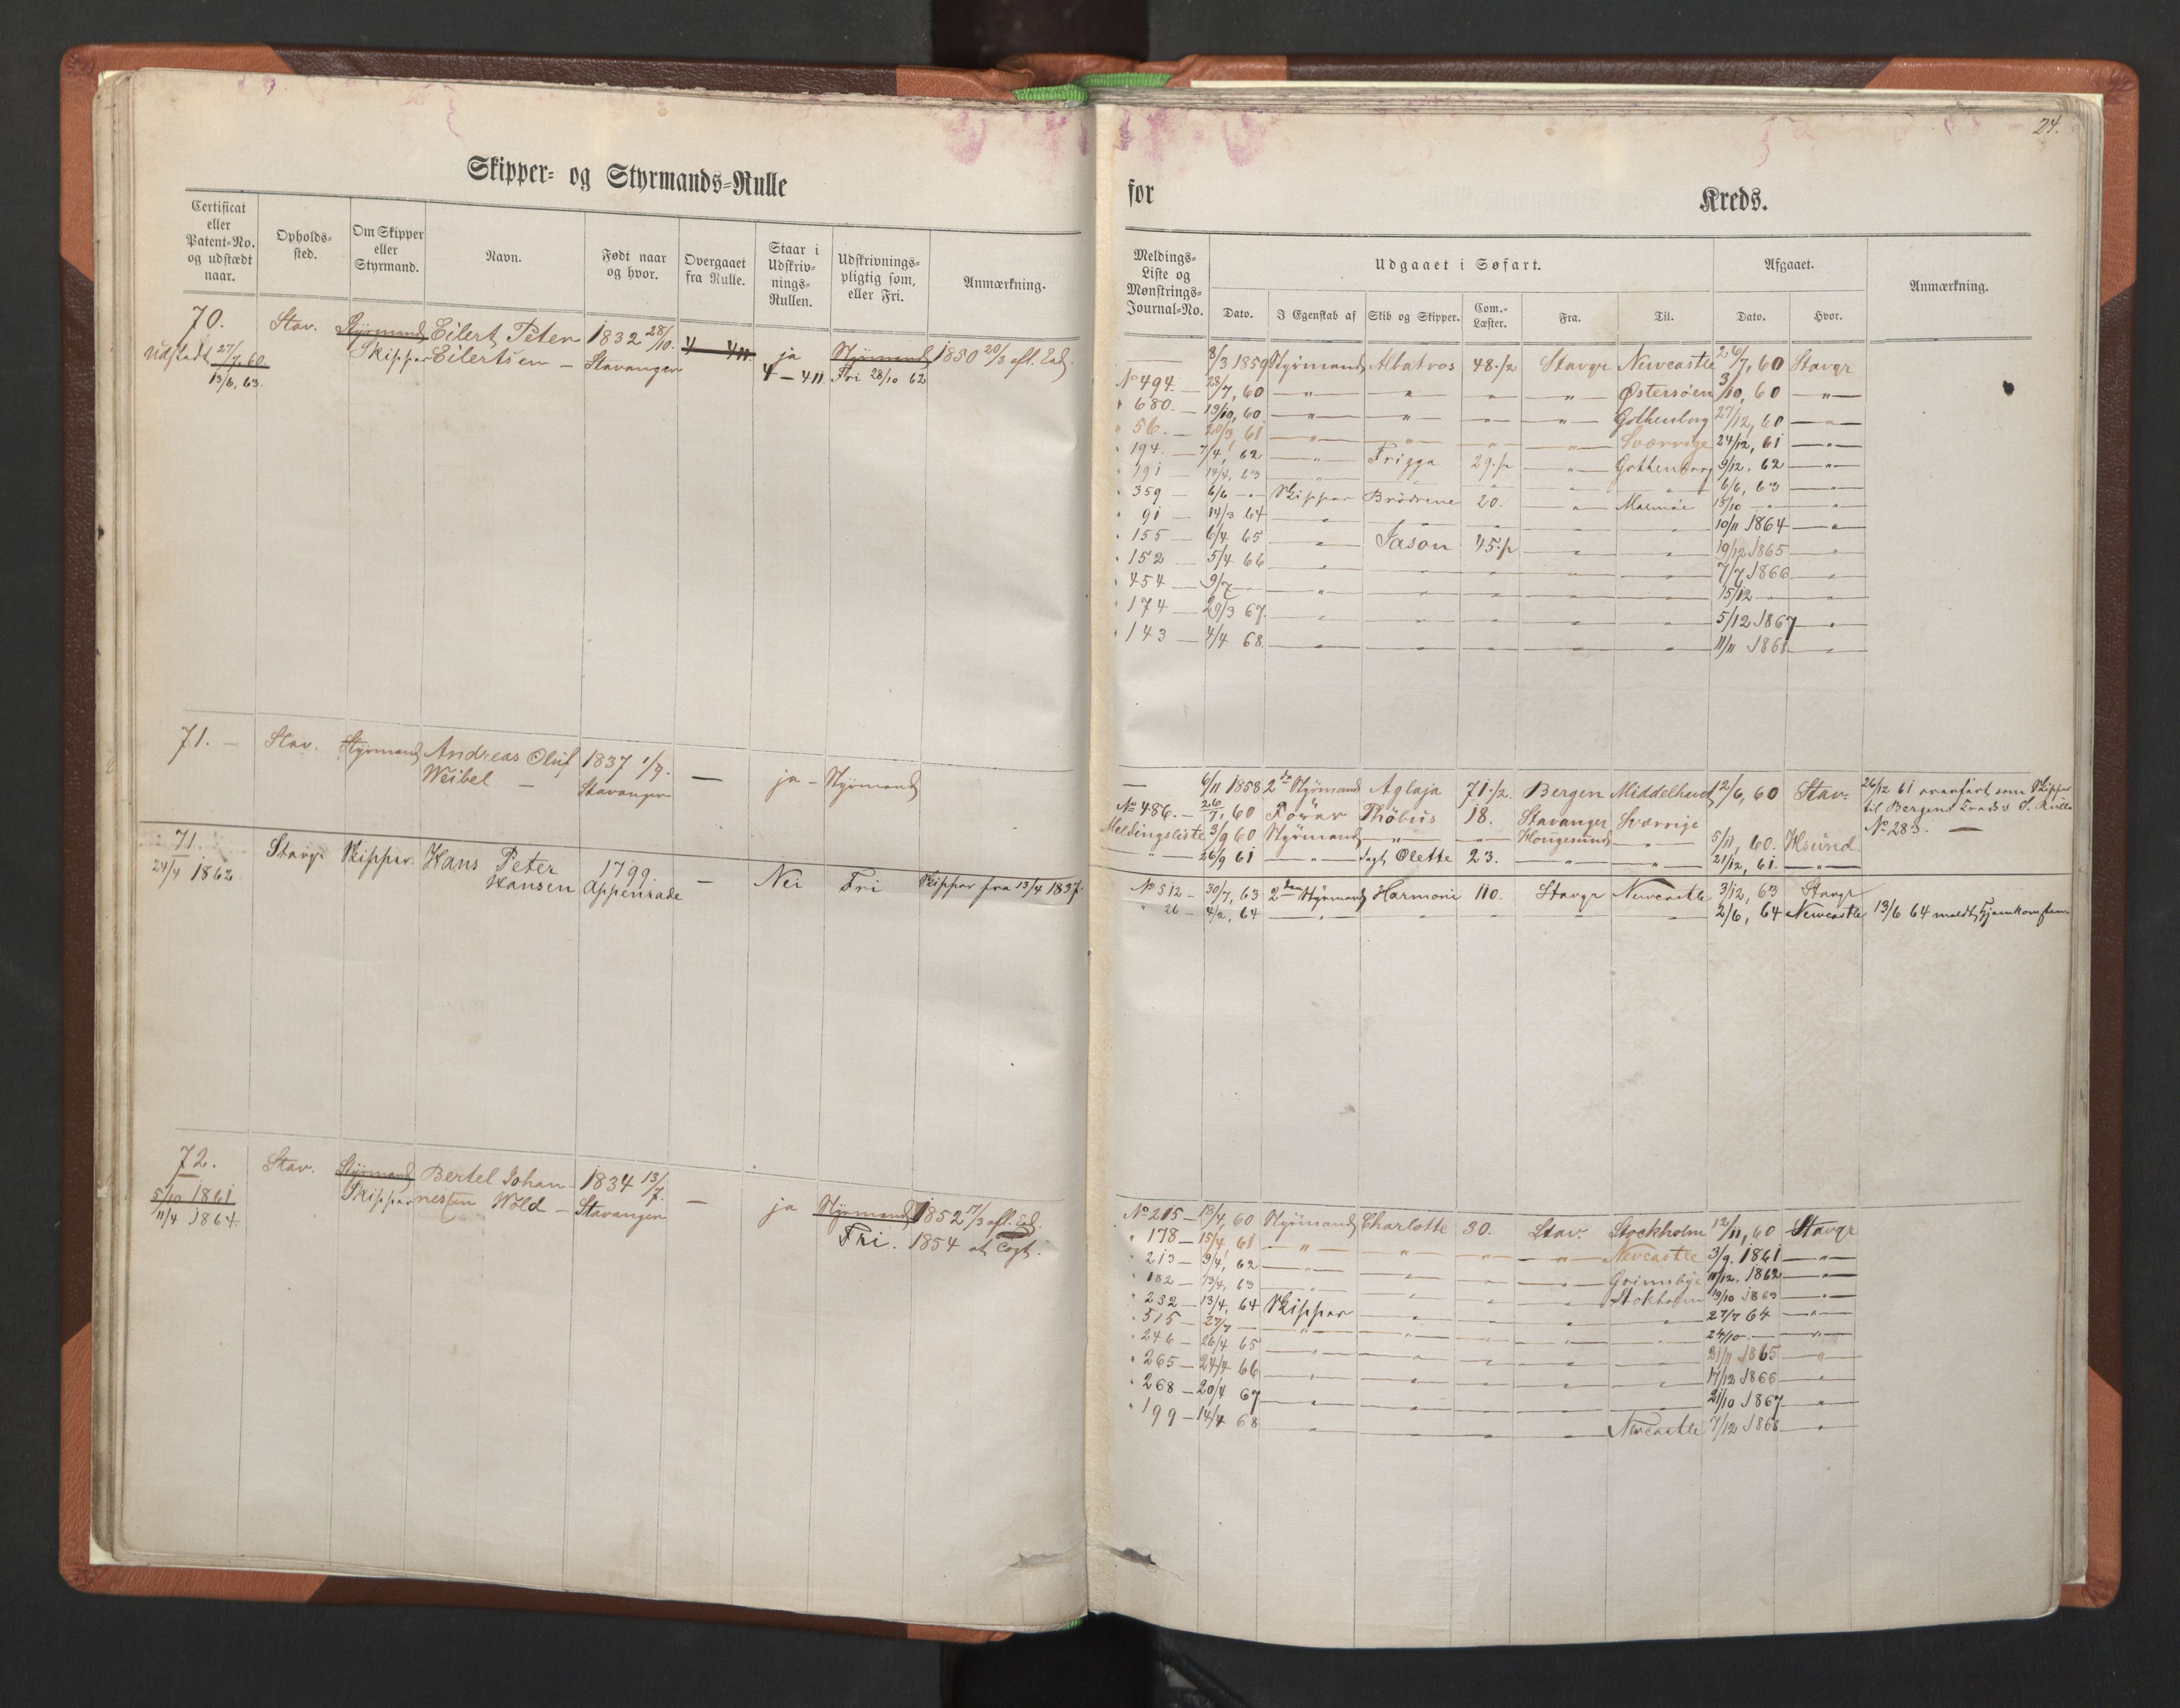 Skipper- og Styrmands-Rulle
Certificat eller Patent-No. og udstædt naar.
Opholds-sted.
Om Skipper eller Styrmand.
Navn.
Født naar og hvor.
Overgaaet fra Rulle.
Staar i Udskriv-nings-Rullen.
Udskrivnings-pligtig som, eller Fri.
Anmærkning.
70. Stav. Styrmand Eilert Peter 1832 28/10.
Udstædt 27/7, 60. Skipper Eilertsen — Stavanger 4 411 ja Styrmand 1850 20/3 afl. Eed.
13/6, 63. 4 — 411 Fri 28/10 62
71. — Stav. Styrmand Andreas Oluf 1837 1/9. — ja — Styrmand
Weibel — Stavanger
71. Stavgr Skipper. Hans Peter 1799. — Nei Fri Skipper fra 13/4 1837.
24/4 1862. Hansen Appenrade
72. Stav. Styrmand Bertel Johan- 1834 13/7. — ja Styrmand 1852 17/3 afl. Eed.
5/10 1861 Skipper nessen Wold — Stavanger Fri. 1854 at
11/4 1864.
24.
for Kreds.
Meldings-Liste og Mønstrings-Journal-No.
Udgaaet i Søfart.
Dato.
I Egenskab af
Skib og Skipper.
Com.-Læster.
Fra.
Til.
Afgaaet.
Dato.
Hvor.
Anmærkning.
— 8/3 1859 Styrmand Albatros 48 1/2 Stavgr Newcastle 26/7, 60 Stavgr
No 494 — 28/7, 60 — " — " — " — " — Østersøen 3/10, 60 — " —
" 680. — 13/10, 60 — " — " — " — " — Gothenborg 27/12, 60 — " —
" 56. — 20/3, 61 — " — " — " — " — Sværrige 24/12, 61 — " —
" 194. — 7/4, 62 — " — Frigga 29 1/2 — " — Gothenborg 9/12. 62 — " —
" 191 — 14/4, 63 — " — " — " — " — " — 6/6, 63 — " —
" 359 — 6/6 — " — Skipper Brødrene 20. — " — Malmøe 15/10 — " — " —
" 91 — 14/3 64 — " — " — " — " — " — 10/11 1864 — " —
" 155 — 6/4 65 — " — Jason 45 1/2 — " — " — 19/12 1865 — " —
" 152 — 5/4 66 — " — " — " — " — " — 7/7 1866 — " —
" 454 — 9/7 — " — " — " — " — " — 15/12 — " — " —
" 174 — 29/3 67. — " — " — " — " — " — 5/12 1867 — " —
" 143 — 4/4 68. — " — " — " — " — " — 11/11 1868 — " —
— 6/11 1858 2de Styrmand Aglaja 71 1/2. Bergen 12/6, 60 Stav: 26/12 61 overført som Skipper
No 486. — 26/7, 60 Fører Phöbus 18. Stavanger Sværrige til Bergens Kredss S. Rulle
Meldingsliste 3/9 60 Styrmand — " — " — Hougesund — " — 5/11, 60. Hsund No 283. —
— " — 26/9 61 — " — Jagt Olette 23. — " — " — 21/12, 61. — " —
No 512 — 30/7, 63 2den Styrmand Harmoni 110. Stavgr Newcastle 3/12, 63 Stavgr
" 26 — 4/2, 64 — " — " — " — " — " — 2/6, 64 Newcastle 13/6 64 meldt Hjemkomsten
No 215 — 13/4, 60 Styrmand Charlotte 30. Stav. Stockholm 12/11, 60 Stavgr
" 178 — 15/4 61 — " — " — " — " — Newcastle 3/9. 1861 — " —
" 213 — 9/4, 62 — " — " — " — " — Grimsbye 11/12. 1862 — " —
" 182 — 13/4, 63 — " — " — " — " — Stokholm 19/10 1863 — " —
" 252 — 13/4, 64 Skipper — " — " — " — " — 27/7 64 — " —
" 515 — 27/7 — " — " — " — " — " — 24/10 — " —
" 246 — 26/4 65 — " — " — " — " — " — 21/11 1865 — " —
" 265 — 24/4 66 — " — " — " — " — " — 17/12 1866 — " —
" 268 — 20/4 67 — " — " — " — " — " — 21/10 1867 — " —
" 199 — 14/4 68 — " — " — " — " — Newcastle 7/12 1868 — " —